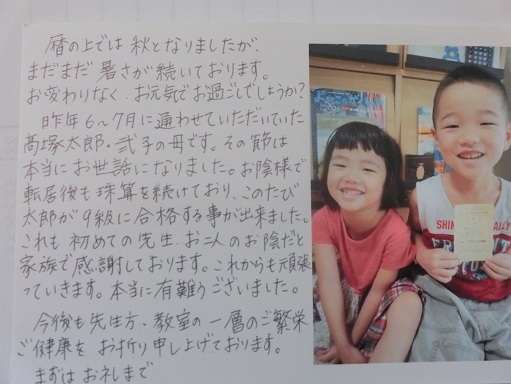 暦の上では秋となりましたが、
まだまだ暑さが続いております。
お変わりなく、お元気でお過ごしでしょうか?
昨年6〜7月に通わせていただいていた
髙塚太郎・弐子の母です。その節は
本当にお世話になりました。お陰様で
転居後も珠算を続けており、このたび
太郎が9級に合格する事が出来ました。
これも初めての先生、お二人のお陰だと
家族で感謝しております。これからも頑張
っていきます。本当に有難うございました。
今後も先生方、教室の一層のご繁栄
ご健康をお祈り申し上げております。
まずはお礼まで